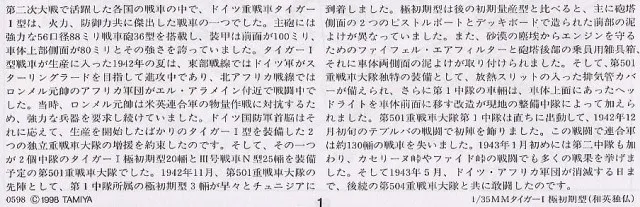 第二次大戦で活躍した各国の戦車の中で、ドイツ重戦車タイガー
I型は、火力、防御力共に傑出した戦車の一つでした。主砲には
強力な56口径88ミリ戦車砲36型を搭載し、装甲は前面が100ミリ、
車体上部側面が80ミリとその強さを誇っていました。タイガーI
型戦車が生産に入った1942年の夏は、東部戦線ではドイツ軍がス
ターリングラードを目指して進攻中であり、北アフリカ戦線では
ロンメル元帥のアフリカ軍団がエル・アラメイン付近で戦闘中で
した。当時、ロンメル元帥は米英連合軍の物量作戦に対抗するた
め、強力な兵器を要求し続けていました。ドイツ国防軍首脳はそ
れに応えて、生産を開始したばかりのタイガーI型を装備した2
つの独立重戦車大隊の増援を約束したのです。そして、その一つ
が2個中隊のタイガーI極初期型20輌とIII号戦車N型25輌を装備
予定の第501重戦車大隊でした。1942年11月、第501重戦車大隊の
先陣として、第1中隊所属の極初期型3輌が早々とチュニジアに
0598 ©1998 TAMIYA
到着しました。極初期型は後の初期量産型と比べると、主に砲塔
側面の2つのピストルポートとデッキボードで造られた前部の泥
よけが異なっていました。また、砂漠の塵埃からエンジンを守る
ためのファイフェル・エアフィルターと砲塔後部の乗員用雑具箱、
それに車体両側面の泥よけが取り付けられました。そして、第501
重戦車大隊独特の装備として、放熱スリットの入った排気管カバ
ーが備えられ、さらに第1中隊の車輌は、車体上面にあったヘッ
ドライトを車体前面に移す改造が現地の整備中隊によって加えら
れました。第501重戦車大隊第1中隊は直ちに出動して、1942年12
月初旬のテブルバの戦闘で初陣を飾りました。この戦闘で連合軍
は約130輌の戦車を失いました。1943年1月初めには第二中隊も加
わり、カセリーヌ峠やファイド峠の戦闘でも多くの戦果を挙げま
した。そして1943年5月、ドイツ・アフリカ軍団が消滅する日ま
で、後続の第504重戦車大隊と共に敢闘したのです。
1
1/35MMタイガーI 極初期型(和英独仏)